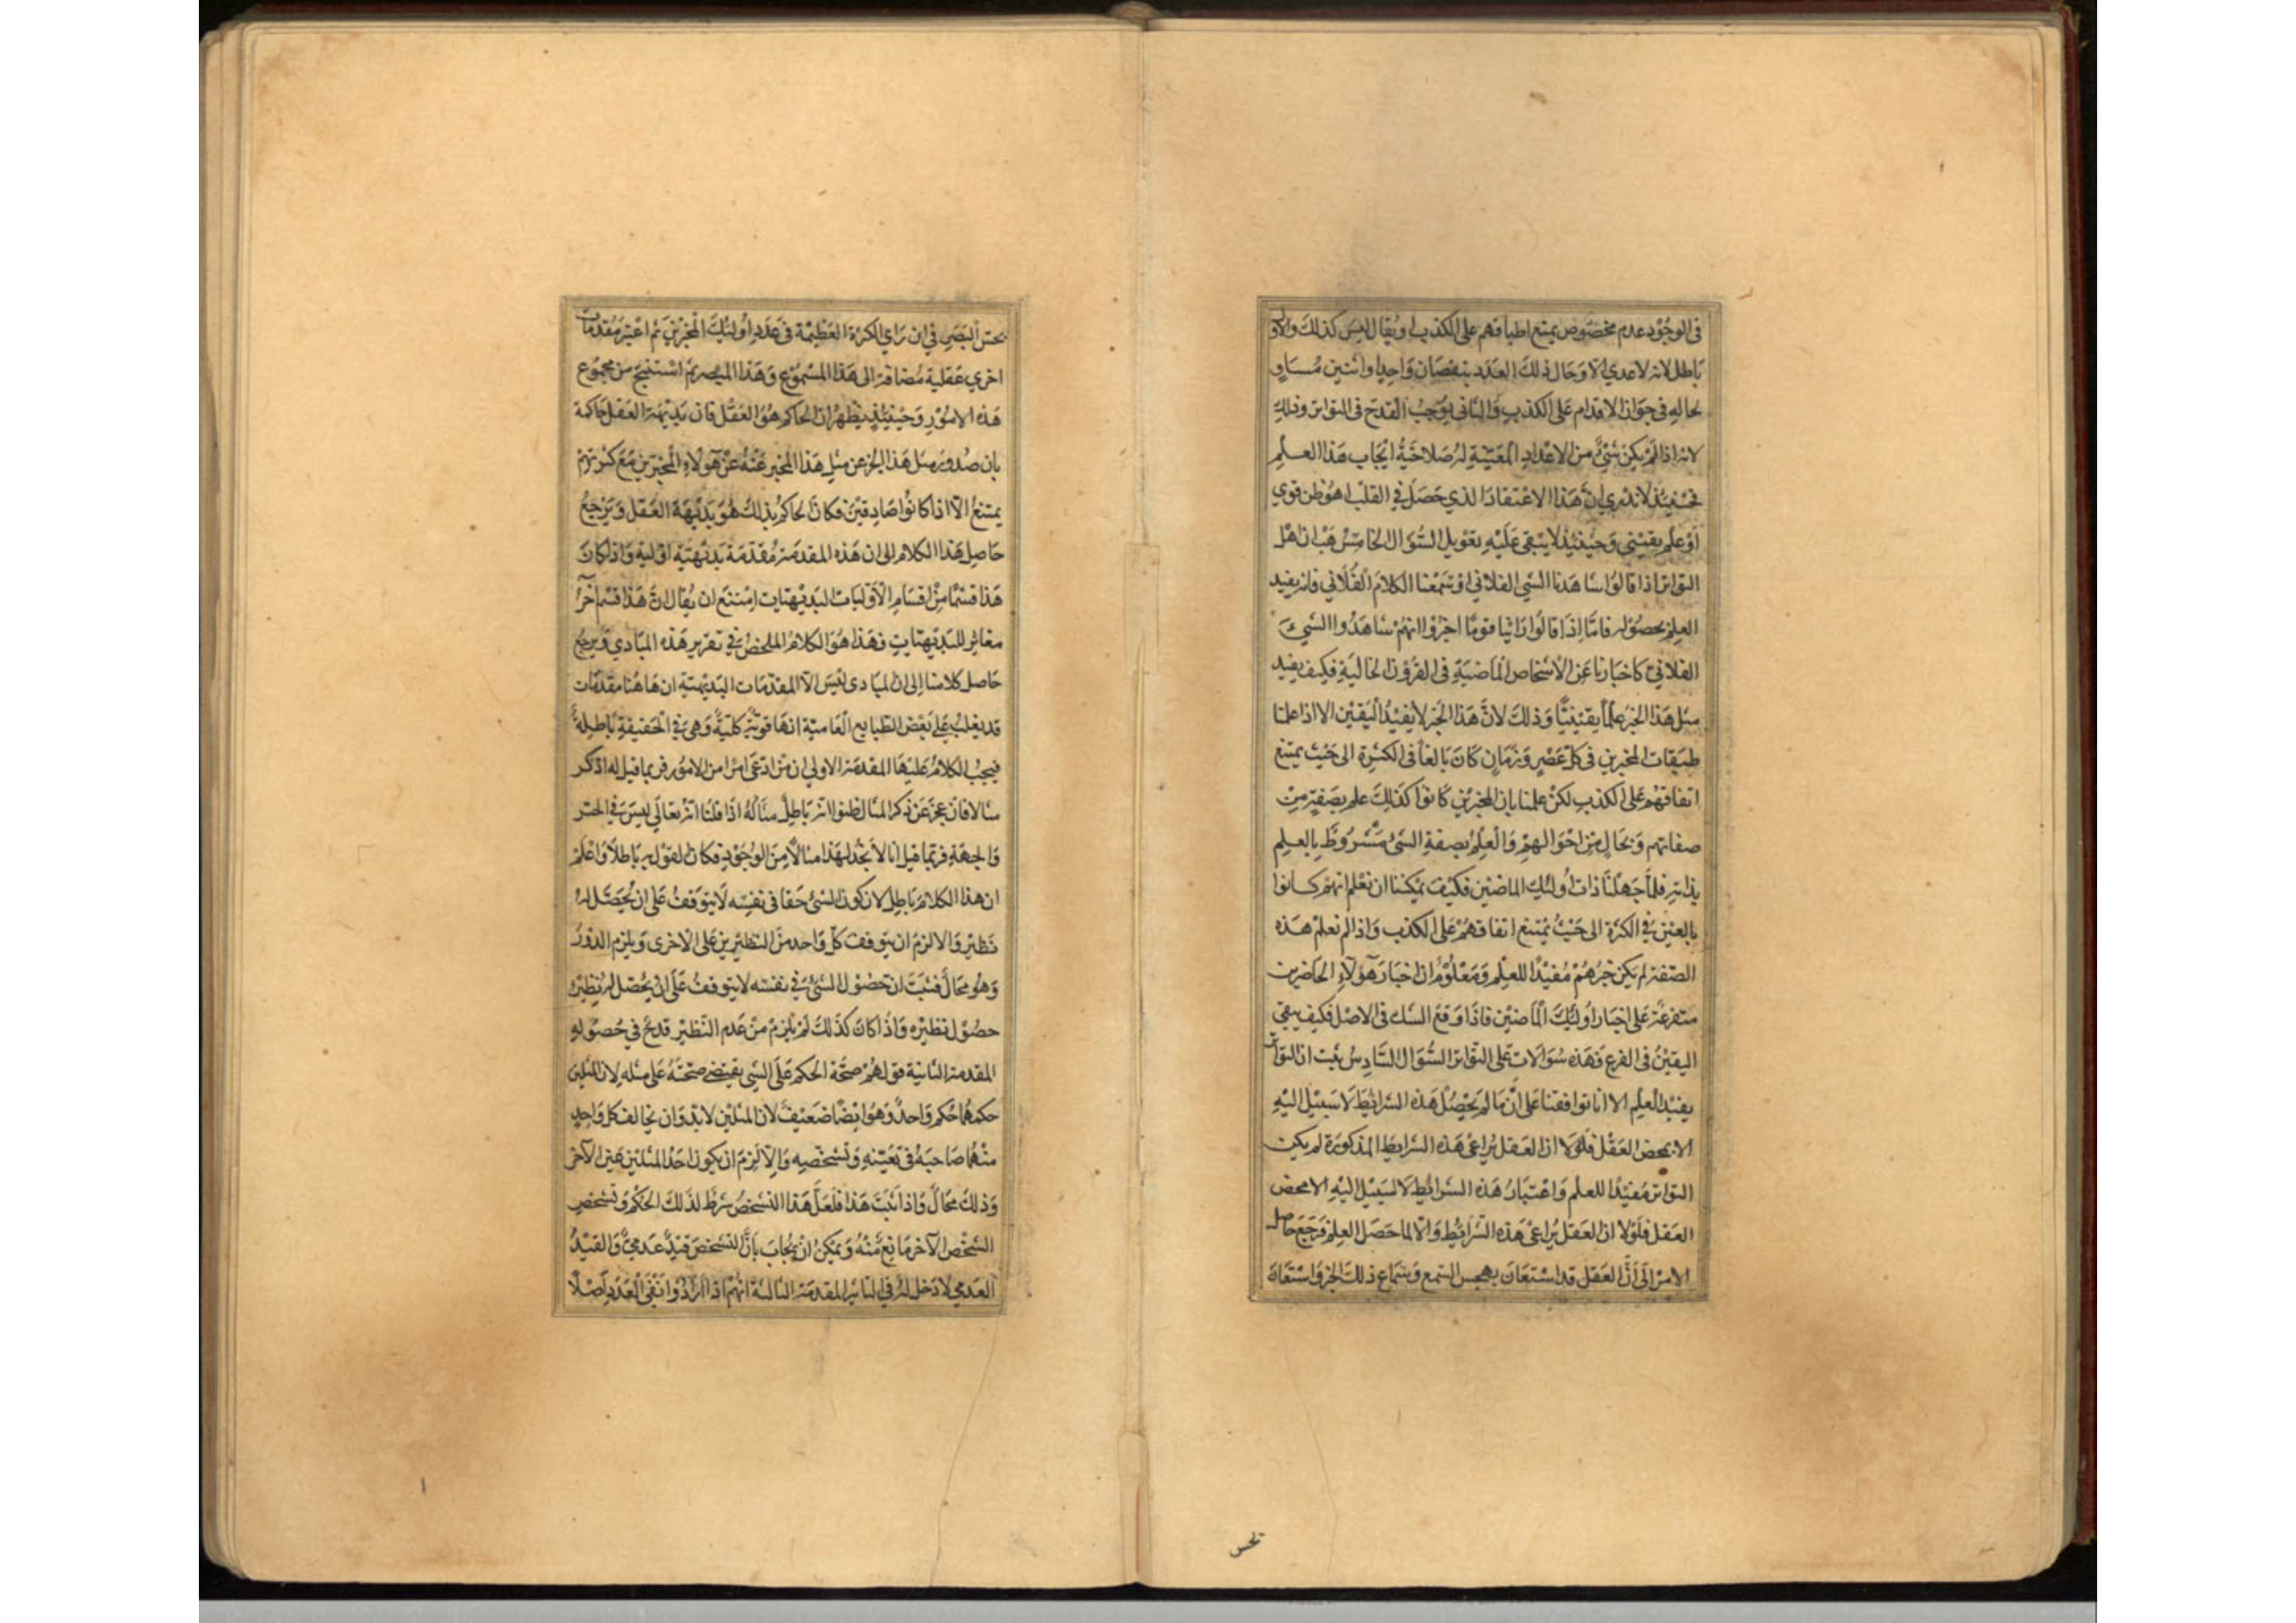 في الوجود عدم مخصوص يمتنع اطباقهم على الكذب او يقال ليس كذلك والاول
باطل لانه لا عدي الا وحال ذلك العدد بنقصان واحد او اثنين مساو
لحاله في جواز الاقدام على الكذب والثاني يوجب القدح في التواتر وذلك
لانه اذا لم يكن شيء من الاعداد المعينة له صلاحية ايجاب هذا العلم
فحينئذ لا ندري ان هذا الاعتقاد الذي حصل في القلب اهو ظن قوي
او علم يقيني وحينئذ لا يبقى عليه تعويل السؤال الخامس هب ان اهل
التواتر اذا قالوا شاهدنا الشي الفلاني او سمعنا الكلام الفلاني فانه يفيد
العلم بحصوله فاما اذا قالوا راينا قوما اخبروا انهم شاهدوا الشيء
الفلاني كاخبارنا عن الاشخاص الماضية في القرون الخالية فكيف يفيد
مثل هذا الخبر علما يقينيا وذلك لان هذا الخبر لا يفيد اليقين الا اذا علمنا
طبقات المخبرين في كل عصر وزمان كان بالغا في الكثرة الى حيث يمتنع
اتفاقهم على الكذب لكن علمنا بان المخبرين كانوا كذلك علم بصفة من
صفاتهم وبحال من احوالهم والعلم بصفة الشئ مشروط بالعلم
بذاته فلما جهلنا ذات اولئك الماضين فكيف يمكننا ان نعلم انهم كانوا
بالغين في الكثرة الى حيث يمتنع اتفاقهم على الكذب واذا لم نعلم هذه
الصفة لم يكن خبرهم مفيدا للعلم ومعلوم ان اخبار هؤلاء الحاضرين
متفرعة على اخبار اولئك الماضين فاذا وقع الشك في الاصل فكيف يبقى
اليقين في الفرع فهذه سؤالات على التواتر السؤال السادس يثبت ان التواتر
يفيد العلم الا انا توافقنا على ان ما لم يحصل هذه الشرائط لا سبيل اليه
الا بمحض العقل فلولا ان العقل يراعى هذه الشرايط المذكورة لم يكن
التواتر مفيدا للعلم واعتبار هذه الشرائط لا سبيل اليه الا محض
العقل فلولا ان العقل يراعى هذه الشرائط والا لما حصل العلم فرجع حاصل
الامر الى ان العقل قد استعان بحس السمع وسماع ذلك الخبر واستعان
بحس
بحس البصر في ان راي الكثرة العظيمة في عدد اولئك المخبرين ثم اعتبر مقدمات
اخري عقلية مضافة الى هذا المسموع وهذا المبصر ثم استنتج من مجموع
هذه الامور وحينئذ يظهر ان الحاكم هو العقل فان بديهة العقل حاكمة
بان صدور مثل هذا الخبر عن مثل هذا المخبر عنه عن هؤلاء المخبرين مع كثرتهم
يمتنع الا اذا كانوا صادقين فكان الحاكم بذلك هو بديهة العقل ويرجع
حاصل هذا الكلام الى ان هذه المقدمة مقدمة بديهية اولية واذا كان
هذا قسما من اقسام الاوليات البديهيات امتنع ان يقال ان هذا قسما آخر
مغاير للبديهيات فهذا هو الكلام الملخص في تقرير هذه المبادي ويرجع
حاصل كلامنا الى ان المبادى ليس الا المقدمات البديهية ان هاهنا مقدمات
قد يغلب على بعض الطبايع العامية انها قوية كلية وهي في الحقيقة باطلة
فيجب الكلام عليها المقدمة الاولي ان من ادعى امرا من الامور فربما قيل له اذكر
مثالا فان عجز عن ذكر المثال ظنوا انه باطل مثاله اذا قلنا انه تعالى ليس في الحيز
والجهة فربما قيل انا لا نجد لهذا مثالا من الوجود فكان القول به باطلا واعلم
ان هذا الكلام باطل لان كون الشئ حقا في نفسه لا يتوقف على ان يحصل له
نظير والا لزم ان يتوقف كل واحد من النظيرين على الاخرى ويلزم الدور
وهو محال فثبت ان حصول الشئ في نفسه لا يتوقف على ان يحصل له نظيره
حصول نظيره واذا كان كذلك لم يلزم من عدم النظير قدح في حصوله
المقدمة الثانية قولهم صحة الحكم على الشي يقتضي صحته على مثله لان المثلين
حكمهما حكم واحد وهو ايضا ضعيف لان المثلين لا بد وان يخالف كل واحد
منهما صاحبه في تعينه وتشخصه والا لزم ان يكون احد المثلين عين الآخر
وذلك محال واذا ثبت هذا فلعل هذا التشخص شرط لذلك الحكم وتشخص
الشخص الآخر مانع منه ويمكن ان يجاب بان التشخص قيد عدمي والقيد
العدمي لا دخل له في التاثير المقدمة الثالثة انهم اذا ارادوا نفي العدد اصلا